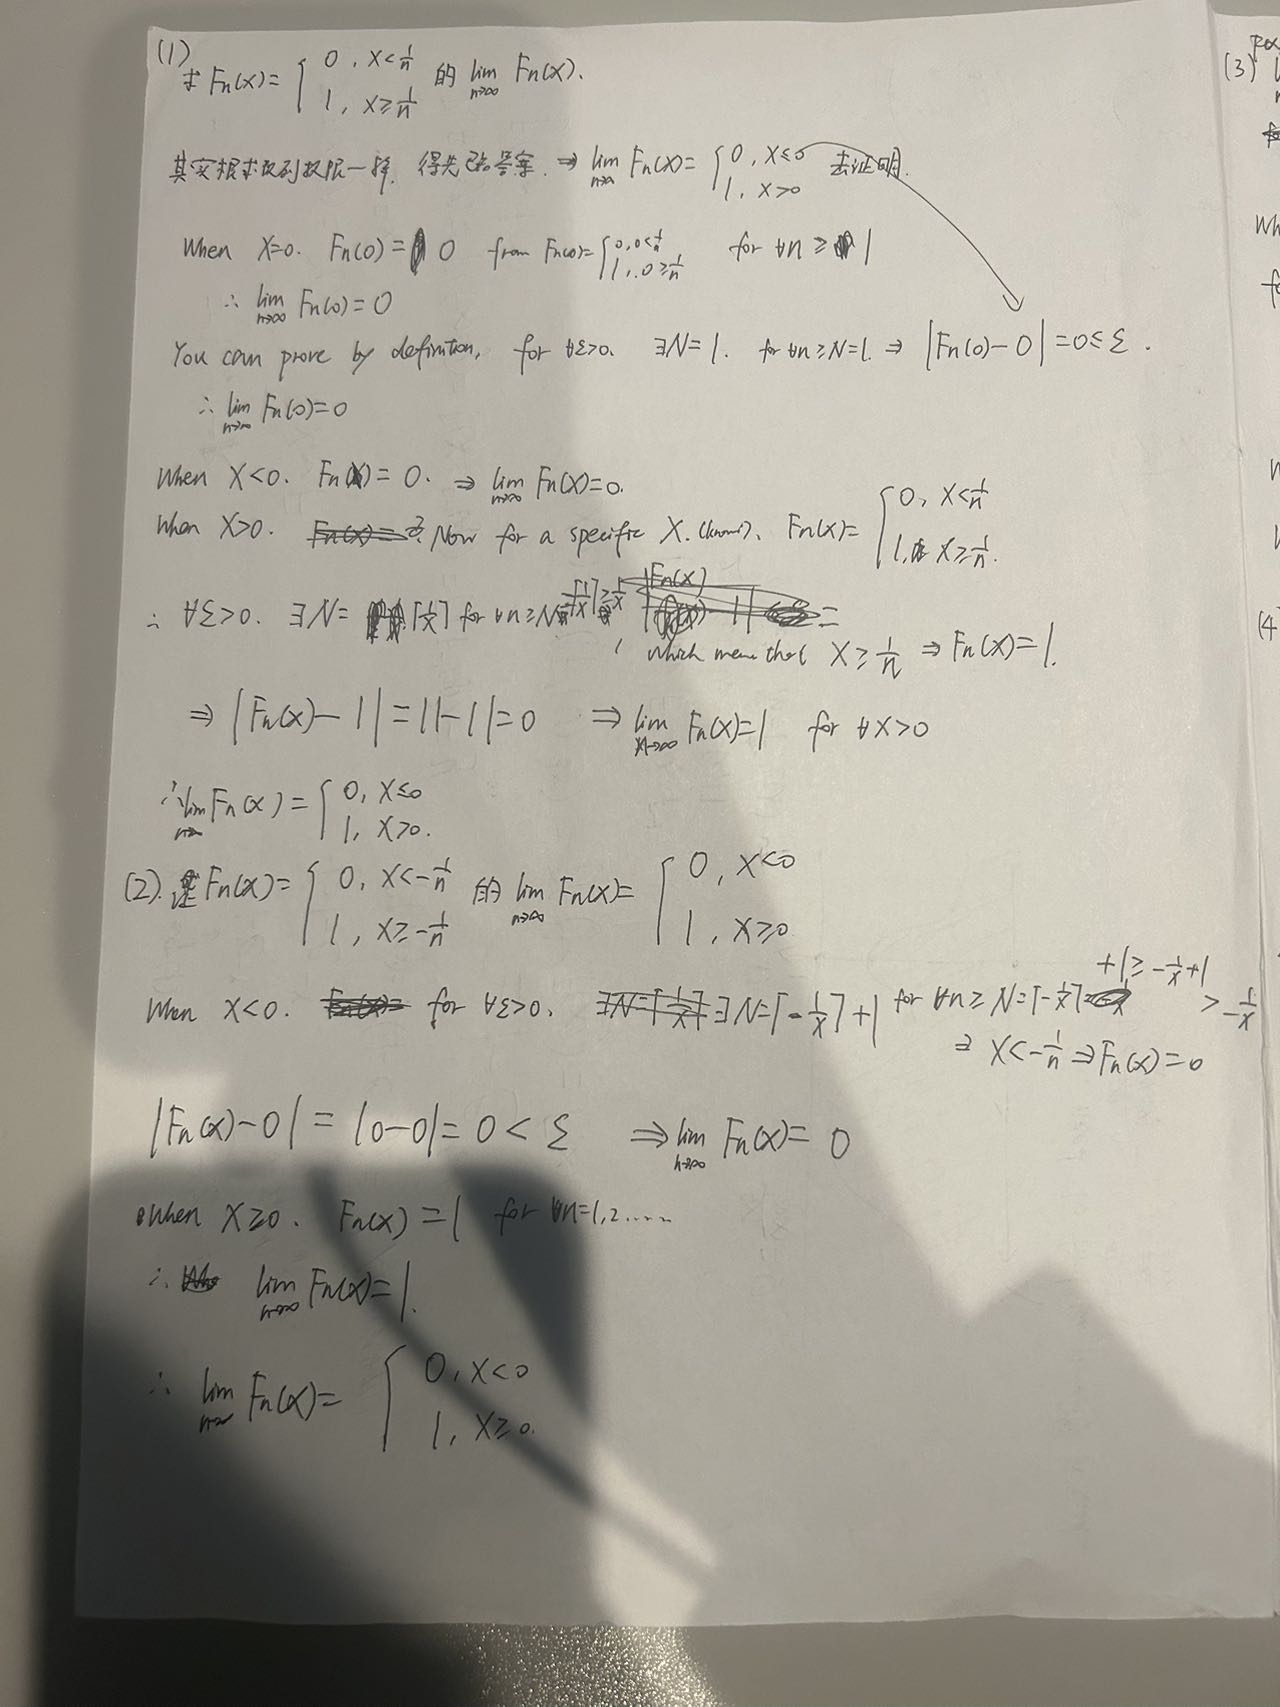 (1)
求 Fn(x)= { 0, x<1/n 的 lim n→∞ Fn(x).
1, x≥1/n
其实根求数列极限一样. 得先知答案. ⇒ lim n→∞ Fn(x)= { 0, x≤0 去证明.
1, x>0
When x=0. Fn(0)= 0 from Fn(0)= { 0, 0<1/n for ∀n≥1
1, 0≥1/n
∴ lim n→∞ Fn(0)=0
You can prove by definition, for ∀ε>0. ∃N=1. for ∀n≥N=1. ⇒ |Fn(0)-0|=0≤ε.
∴ lim n→∞ Fn(0)=0
When x<0. Fn(x)=0. ⇒ lim n→∞ Fn(x)=0.
When x>0. Now for a specific x. (known). Fn(x)= { 0, x<1/n
1, x≥1/n.
∴ ∀ε>0. ∃N= ⌈1/x⌉ for ∀n≥N=⌈1/x⌉≥1/x
, which mean that x≥1/n ⇒ Fn(x)=1.
⇒ |Fn(x)-1|=|1-1|=0 ⇒ lim n→∞ Fn(x)=1 for ∀x>0
∴ lim n→∞ Fn(x)= { 0, x≤0
1, x>0.
(2). Fn(x)= { 0, x<-1/n 的 lim n→∞ Fn(x)= { 0, x<0
1, x≥-1/n 1, x≥0
When x<0. for ∀ε>0. ∃N=⌈-1/x⌉+1 for ∀n≥N=⌈-1/x⌉+1≥-1/x+1>-1/x
⇒ x<-1/n ⇒ Fn(x)=0
|Fn(x)-0|=|0-0|=0<ε ⇒ lim n→∞ Fn(x)=0
When x≥0. Fn(x)=1 for ∀n=1,2.....
∴ lim n→∞ Fn(x)=1.
∴ lim n→∞ Fn(x)= { 0, x<0
1, x≥0.
(3)
(4